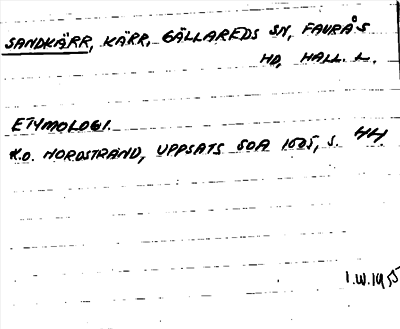 SANDKÄRR, KÄRR, GÄLLAREDS SN, FAURÅS
HD, HALL. L.
ETYMOLOGI.
K.O. NORDSTRAND, UPPSATS SOA 1605, S. 44.
I.W. 1955